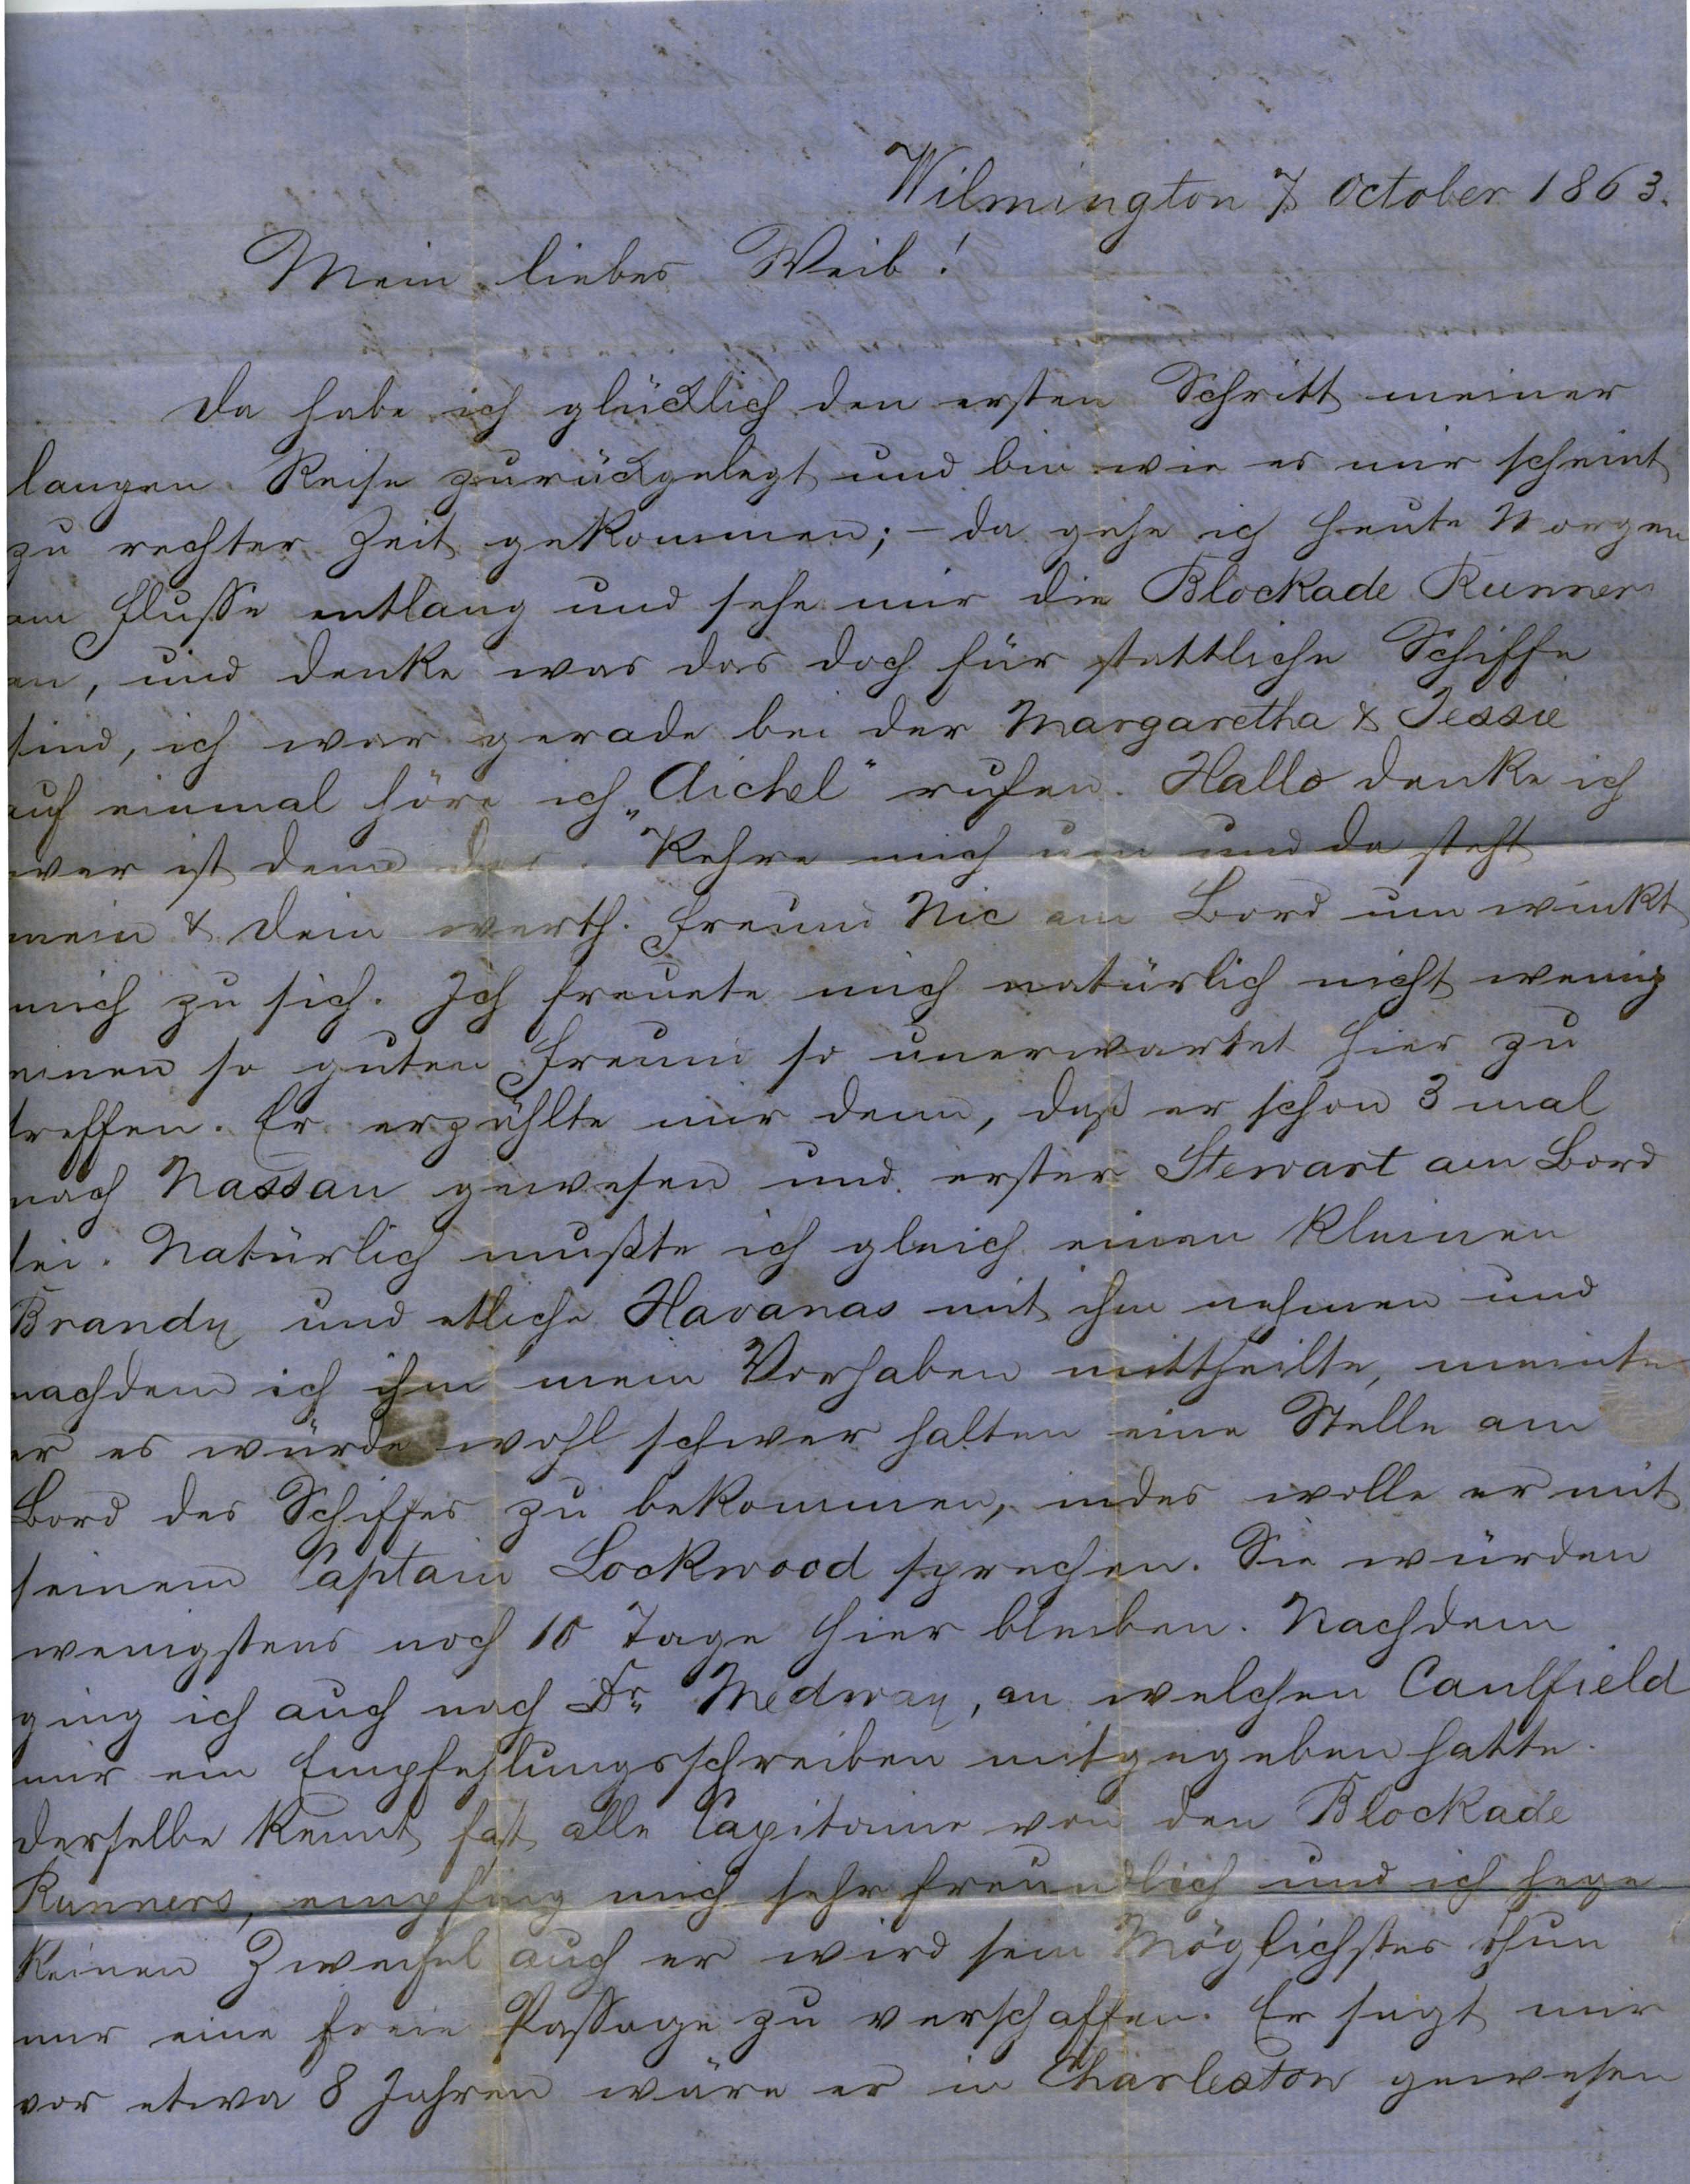 Wilmington 7 October 1863.
Mein liebes Weib!
Da habe ich glücklich den ersten Schritt meiner
langen Reise zurückgelegt und bin wie es mir scheint
zu rechter Zeit gekommen; – da gehe ich heute Morgen
am Flusse entlang und sehe mir die Blockade Runner
an, und denke was das doch für stattliche Schiffe
sind, ich war gerade bei der Margaretha & Jessie
auf einmal höre ich „Aichel“ rufen. Hallo denke ich
wer ist denn das. Kehre mich um und da steht
mein & Dein werth. Freund Nic am Bord um winkt
mich zu sich. Ich freuete mich natürlich nicht wenig
einen so guten Freund so unerwartet hier zu
treffen. Er erzählte mir denn, daß er schon 3 mal
nach Nassau gewesen und erster Stewart am Bord
sei. Natürlich mußte ich gleich einen kleinen
Brandy und etliche Havanas mit ihm nehmen und
nachdem ich ihm mein Vorhaben mittheilte, meinte
er es würde wohl schwer halten eine Stelle am
Bord des Schiffes zu bekommen, indes wolle er mit
seinem Captain Lockwood sprechen. Sie würden
wenigstens noch 10 Tage hier bleiben. Nachdem
ging ich auch nach Dr. Medway, an welchen Caulfield
mir ein Empfehlungsschreiben mitgegeben hatte.
Derselbe kennt fast alle Capitaine von den Blockade
Runners, empfing mich sehr freundlich und ich hege
keinen Zweifel auch er wird sein Möglichstes thun
mir eine freie Passage zu verschaffen. Er sagt mir
vor etwa 8 Jahren wäre er in Charleston gewesen